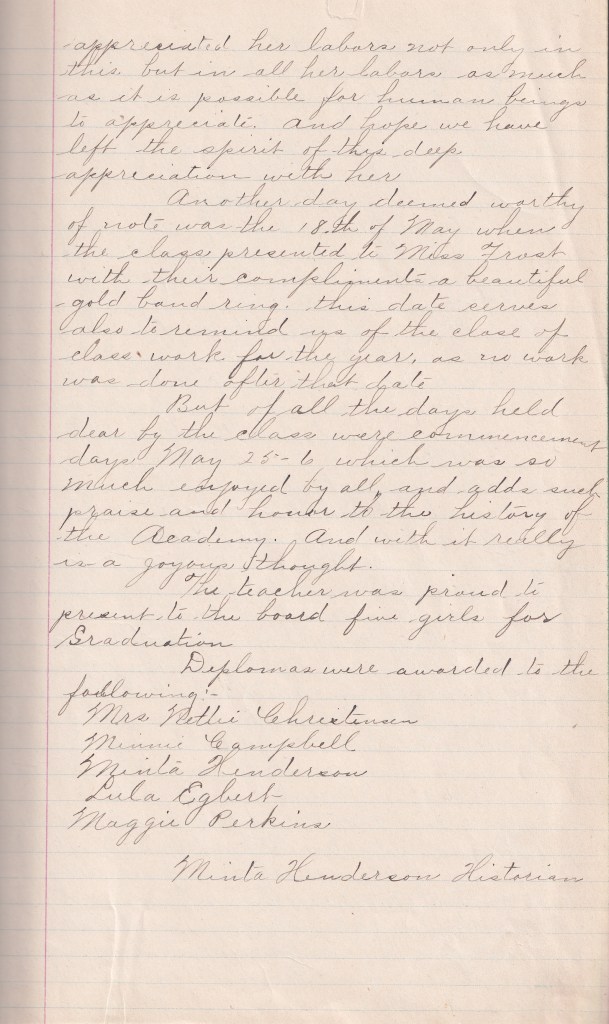 appreciated her labors not only in
this but in all her labors as much
as it is possible for human beings
to appreciate. And hope we have
left the spirit of this deep
appreciation with her
Another day deemed worthy
of note was the 18.th of May when
the class presented to Miss Frost
with their compliments a beautiful
gold band ring. this date cerves
also to remind us of the close of
class work for the year, as no work
was done after that date
But of all the days held
dear by the class were commencement
days May 25-6 which was so
much enjoyed by all, and adds such
praise and honor to the history of
the Academy. And with it really
is a joyous thought.
The teacher was proud to
present to the board five girls for
Graduation
Deplomas were awarded to the
following:-
Mrs Nettie Christensen
Minnie Campbell
Minta Henderson
Lula Egbert
Maggie Perkins
Minta Henderson Historian